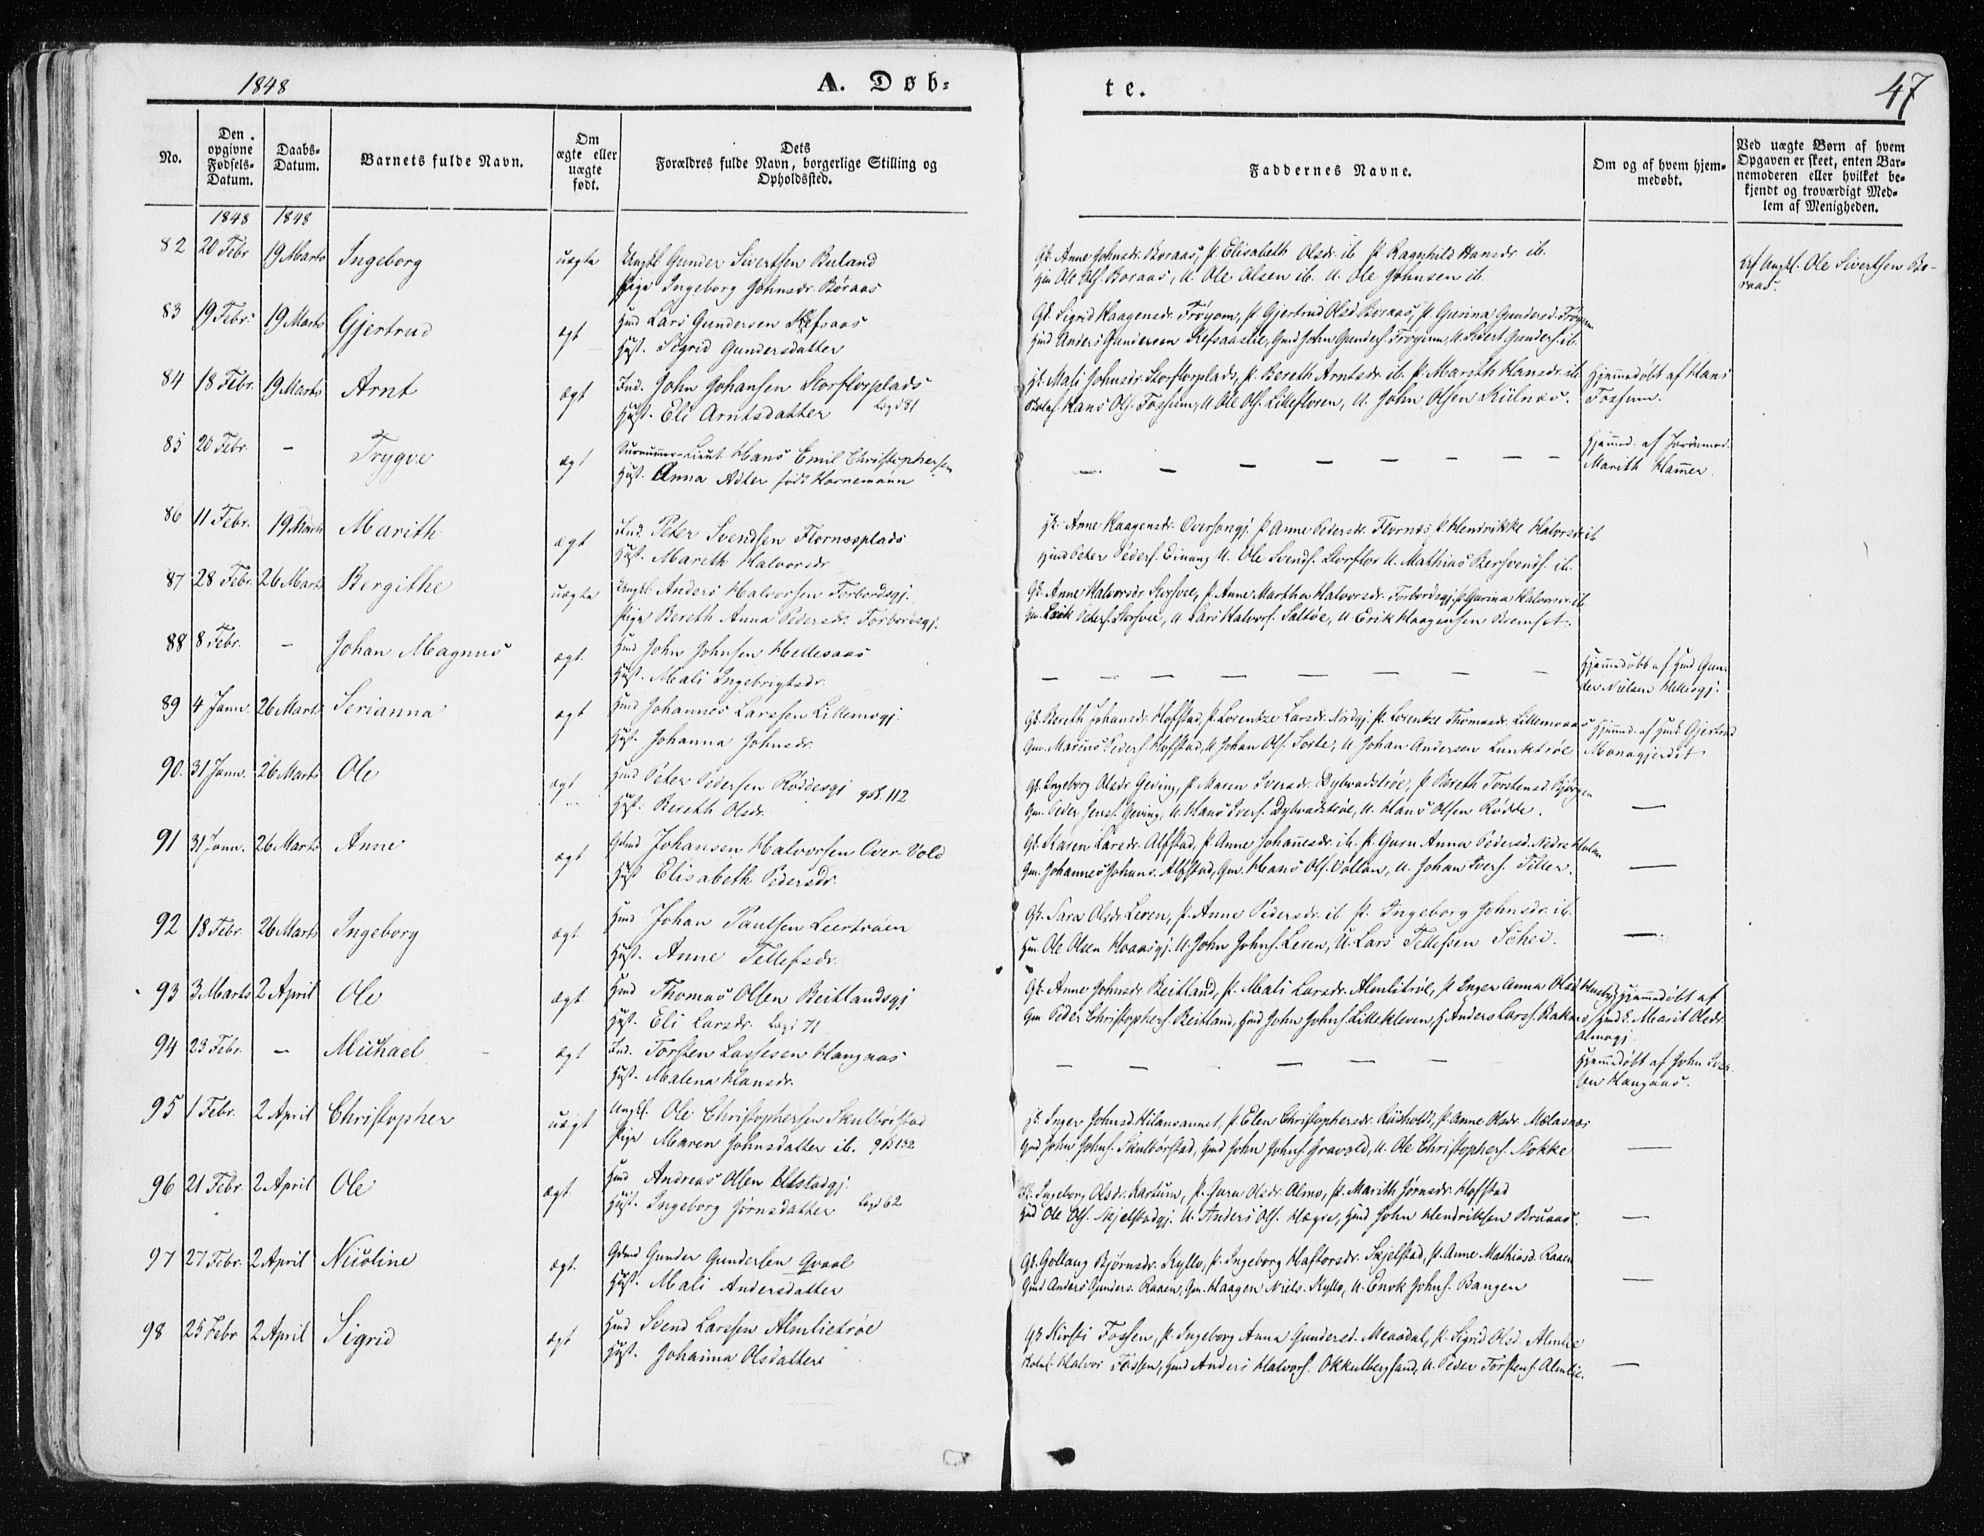 1848
A. Døb-
te.
47
No.
Den opgivne Fødsels-Datum.
Daabs-Datum.
Barnets fulde Navn.
Om ægte eller uægte født.
Dets Forældres fulde Navn, borgerlige Stilling og Opholdssted.
Faddernes Navne.
Om og af hvem hjem-medøbt.
Ved uægte Børn af hvem Opgaven er skeet, enten Bar-nemoderen eller hvilket be-kjendt og troværdigt Med-lem af Menigheden.
1848 1848
82 20 Febr 19 Marts Ingeborg uægte Ungkl Gunder Sivertsen Beiland
Pige Ingeborg Johnsdr. Boraas
Gk. Anne Johnsdr. Boraas, P. Elisabeth Olsdr. ib. P. Ragnhild Hansdr ib.
Gm Ole Ols. Boraas, U. Ole Olsen ib. U. Ole Johnsen ib.
Ungkl. Ole Sivertsen Bo-
raas.
83 19 Febr. 19 Marts Gjertrud ægt Hmd Lars Gundersen Kefsaas
Hust. Sigrid Gundersdatter
Gk. Sigrid Haagensdr. Trøyom, P. Gjertrud Olsd Boraas, P. Gurina Gundersd. Trøyom
Hmd Anders Gundersen Kefsaaslie, Gmd John Gunders. Trøyom, U. Sivert Gunders. ib.
84 18 Febr. 19 Marts Arnt ægt Ind. John Johansen Storflorplads
Hust. Eli Arntsdatter
Mali Johnsdr. Storflorplads, P. Bereth Arntsdr. ib. P. Mareth Hansdr. ib.
Hans Ols. Fossum, U Ole Ols. Lillefloren, U. John Olsen Kulnæs.
Hjemmedøbt af Hans
Fossum.
85 20 Febr. – Trygve ægt Surnummer-Lieut Hans Emil Christophersen
Hust. Anna Adler født Hornemann
– – – – – – – – –
Hjemmed. af Jordemod.
Marith Hamer.
86 11 Febr. 19 Marts Marith ægt Ind. Peter Svendsen Flornesplads
Hust. Mareth Halvorsdr
Anne Haagensdr. Oversongj. P. Anne Pedersdr. Flornes P. Hendrikke Halvorsd. ib
Hmd Peter Peders. Einang U. Ole Svends. Storflor U. Mathias Bersvends. ib.
87 28 Febr. 26 Marts Bergithe uægte Ungkl. Anders Halvorsen Forbordsgj.
Pige Bereth Anna Pedersdr. Forbordsgj.
Gk. Anne Halvorsdr Storvee, P. Anne Martha Halvorsdr. Forbordsgj. P. Gurina Halvorsdr. ib
Gm. Erik Peders. Storvee, U. Lars Halvors. Saltøe, U Erik Haagensen Bremset.
88 8 Febr. – Johan Magnus ægt. Hmd John Johnsen Hellesaas
Hust. Mali Ingebrigtsdr.
– – – – – – – –
Hjemmedøbt af Hmd Gun-
der Nielsen Hellesgj.
89 4 Janr. 26 Marts Serianna ægt Hmd Johannes Larssen Lillemogj.
Hust. Johanna Johnsdr.
Gk. Bereth Johansdr. Hofstad, P. Lorentze Larsdr. Nordgj. P. Lorentze Thomasdr. Lillemoaas
Gm. Marius Peders. Hofstad, U Johan Ols. Soste, U. Johan Andersen Lunktrøe
Hjemmed. af Hust Gjertrud
Monagjerdet
90. 31 Janr. 26 Marts Ole ægt Hmd Peter Pedersen Røddesgj gol. 112
Hust. Bereth Olsdr.
Gk. Ingeborg Olsdr Geving, P. Maren Iversdr. Dybvadstrøe, P. Bereth Torstensd. Bjørgen
Gm. Peder Jens. Geving, U. Hans Ivers. Dybvadstrøe, U. Hans Olsen Rødde.
–
91 31 Janr. 26 Marts Anne ægt Gmd Johansen Halvorsen Over-Vold
Hust Elisabeth Pedersdr.
Gk. Maren Larsdr. Alfstad, P. Anne Johannesdr. ib. P. Guru Anna Pedersd. Nedre Holan
Gm. Johannes Johans. Alfstad, Gm. Hans Ols. Vollan, U. Johan Ivers. Teller.
–
92 18 Febr. 26 Marts Ingeborg ægt. Hmd Johan Paulsen Leertrøen
Hust. Anne Tellefsdr.
Gk. Sara Olsdr. Leren, P. Anne Pedersdr. ib. P. Ingeborg Johnsdr. ib.
Hm. Ole Olsen Moansgj. U. John Johns. Leren, U. Lars Tellefsen Schei.
–
93 3 Marts 2 April Ole ægt Hmd Thomas Olsen Beitlandsgj
Hust. Eli Larsdr. Lægd 71
Gk. Anne Johnsdr Beitland, P. Mali Larsdr. Almlitrøe, P. Inger Anna Olsd.
Gm Peder Christophers. Beitland, Hmd John Johns. Lillekleven, U. Anders Larss. Raknes
Hjemmedøbt af
Marit Olsdr.
Almogj.
94 23 Febr. – Michael ægt Ind. Torsten Lassesen Haugnæs
Hust. Malena Hansdr.
– – – –
Hjemmedøbt af John
sen Haugnæs.
95 1 Febr. 2 April Christopher uægt Ungkl. Ole Christophersen Skulbørstad
Pige Maren Johnsdatter ib.
Inger Johnsd. Hilansannet, P. Elen Christophersdr. Kusholt, P. Anne Olsdr. Mælasnæs
Gmd John Johns. Skulbørstad, Gmd John Johns. Gravold, U. Ole Christophers. Stokke
–
96 21 Febr 2 April Ole ægt Hmd Andreas Olsen Elstadgj.
Hust. Ingeborg Jørnsdatter Lægd 62
Ingeborg Olsdr. Kartum, P. Guru Olsdr. Almo, P. Marith Jørnsdr. Hofstad
Gmd Ole Ols. Skjelstadgj. U. Anders Ols. Hægre, Hmd John Hendriksen Bruaas.
–
97 27 Febr. 2 April Nicoline ægt. Gdmd Gunder Gundersen Qvaal
Hust. Mali Andersdatter
Gk. Gollaug Bjørnsdr. Kyllo, P. Ingeborg Haftorsdr. Skjelstad, P. Anne Mathiasd. Raaen
Gmd Anders Gunders. Raaen, Gm. Haagen Niels. Kyllo, U. Enok Johns. Bangen
–
98 25 Febr 2 April Sigrid ægt Hmd Svend Larssen Almlietrøe
Hust. Johanna Olsdatter
Gk Kirsti Fossen, P. Ingeborg Anna Gundersd. Meaadal, P. Sigrid Olsd. Almlie
Halvor Fossen, Gmd Anders Halvors. Okkelbergsand, U. Peder Torstens. Almlie.
–